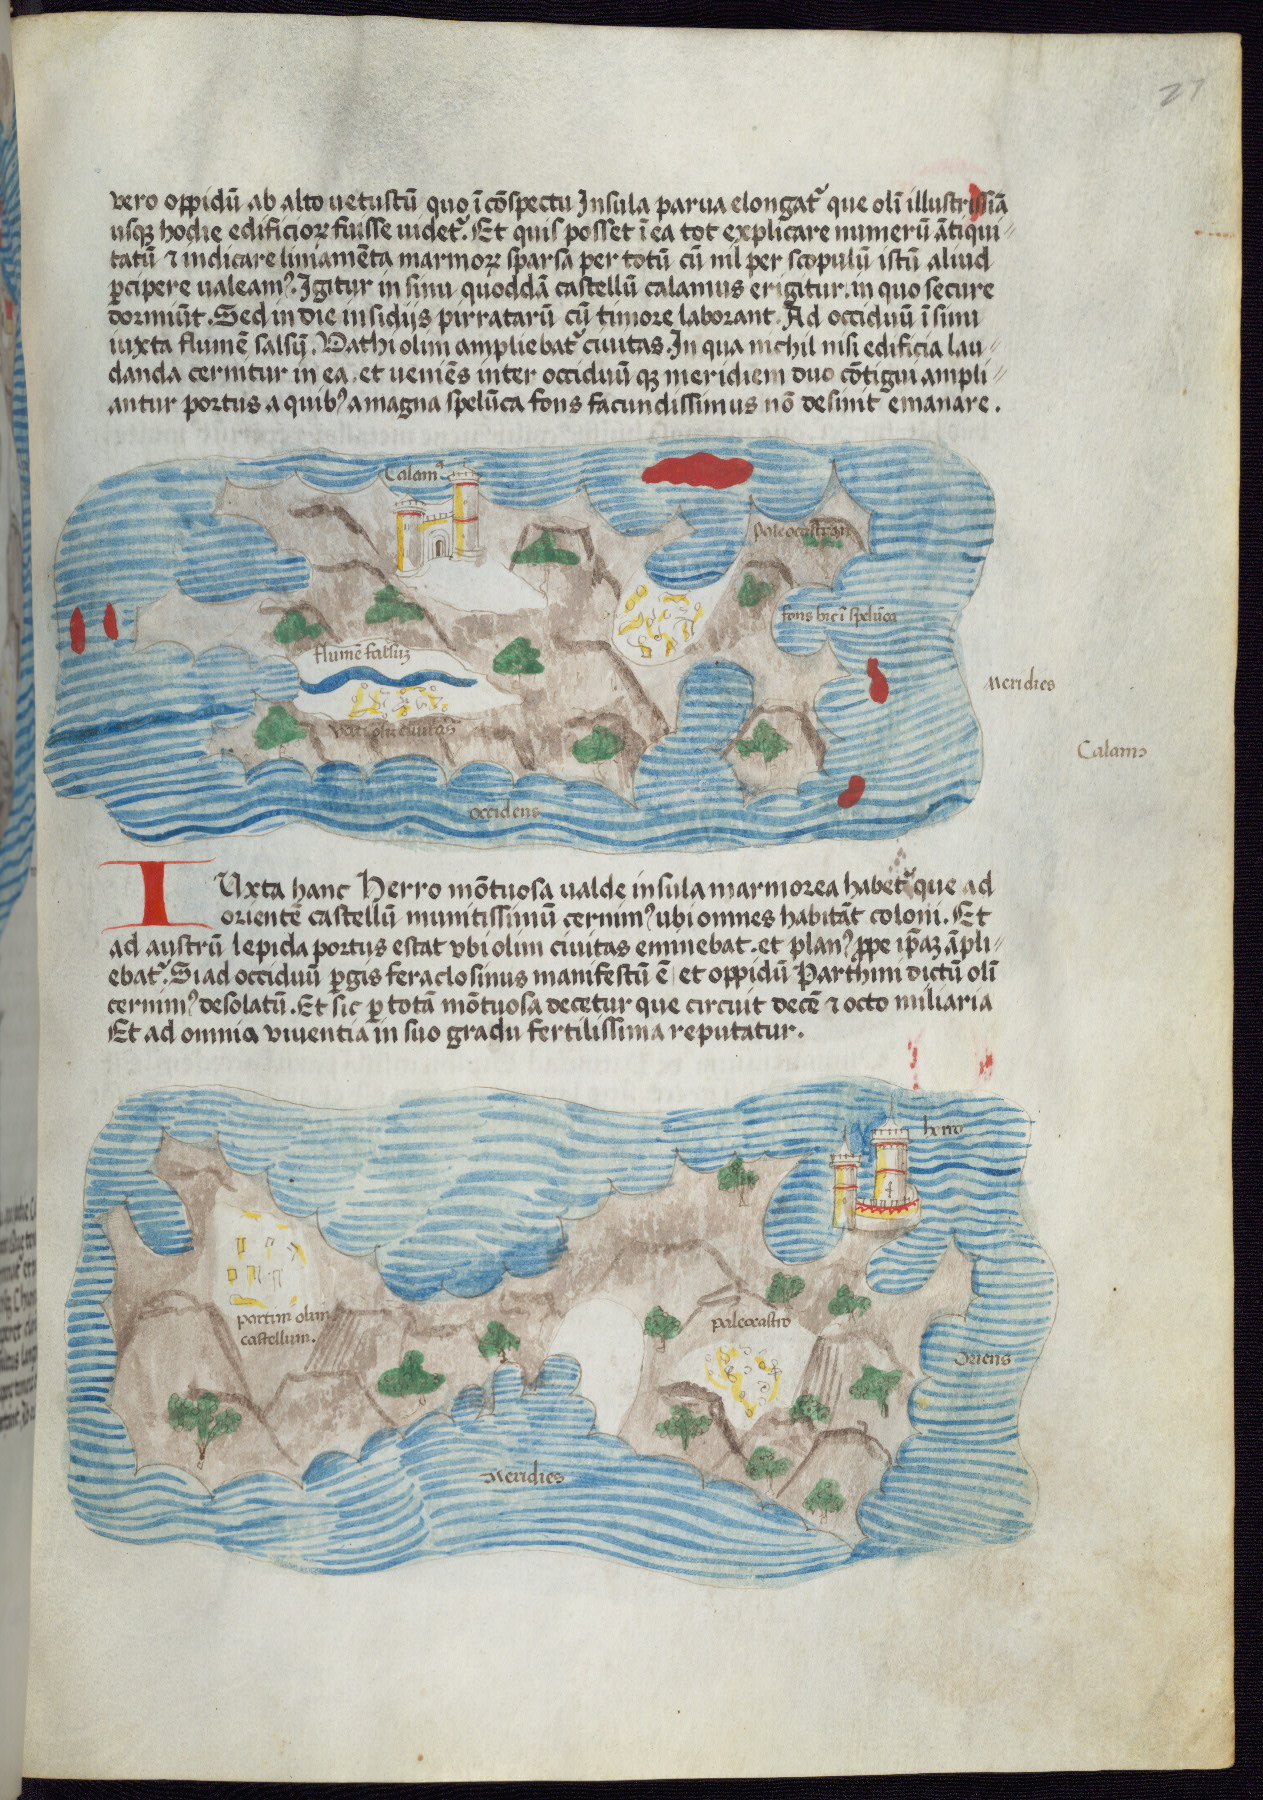 27
vero oppidū ab alto uetustū quo ī cōspectu Insula parua elongatᷣ que olī illustrissiā
usqꝫ hodie edificioꝝ fuisse uidetᷣ. Et quis posset ī ea tot explicare numerū ātiqui⸗
tatū ⁊ indicare liniamēta marmoꝝ sparsa per totū cū nil per scopulū istū aliud
ꝑcipere ualeamꝰ. Igitur in sinu quoddā castellū calamus erigitur. in quo secure
dormiūt. Sed in die insidijs pirratarū cū timore laborant. Ad occiduū ī sinu
iuxta flumē salsū. Vathi olim ampliebatᷣ ciuitas. In qua nichil nisi edificia lau⸗
danda cernitur in ea. et ueniēs inter occiduū qꝫ meridiem duo cōtigui ampli⸗
antur portus a quibꝰ a magna spelūca fons facundissimus nō desinit emanare.
Calamꝰ
paleocastrum
fons hic ī spelūca
flumē salsū
vati olī ciuitas
Meridies
Calamꝰ
occidens
IUxta hanc Herro mōtuosa ualde insula marmorea habetᷣ que ad
orientē castellū munitissimū cernimꝰ ubi omnes habitāt coloni. Et
ad austrū lepida portus estat vbi olim ciuitas eminebat. et planꝰ ꝓpe ip̄aꝫ āpli⸗
ebatᷣ. Si ad occiduū ꝑgis feraclosinus manifestū ē et oppidū Parthini dictū olī
cernimꝰ desolatū. Et sic ꝑ totā mōtuosa decetur que circuit decē ⁊ octo miliaria
Et ad omnia viventia in suo gradu fertilissima reputatur.
herro
partini olim
castellum.
paleocastro
Oriens
Meridies